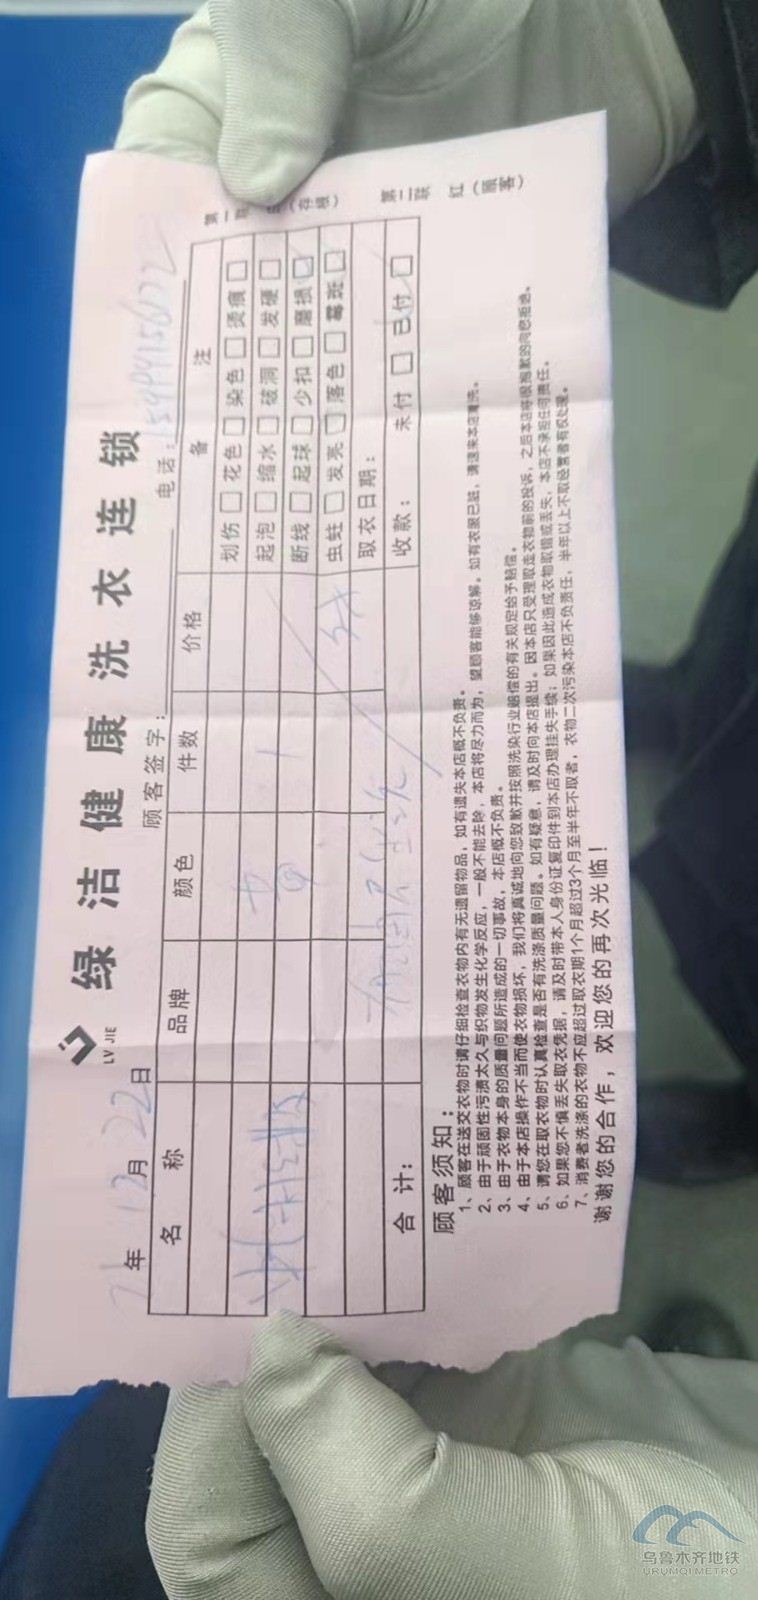 绿洁健康洗衣连锁
LV JIE
年12月22日
顾客签字：
电话：
名称 品牌 颜色 件数 价格 备注
划伤□ 花色□ 染色□ 烫痕□
起泡□ 缩水□ 破洞□ 发硬□
黄 1
断线□ 起球□ 少扣□ 磨损□
虫蛀□ 发亮□ 落色□ 霉斑□
取衣日期：
合计： 收款： 未付□ 已付□
第一联 (存根)
第二联 红(顾客)
顾客须知：
1、顾客在送交衣物时请仔细检查衣物内有无遗留物品，如有遗失本店概不负责。
2、由于顽固性污渍太久与织物发生化学反应，一般不能去除，本店将尽力而为，望顾客能够谅解。如有衣服已脏，请送来本店清洗。
3、由于衣物本身的质量问题所造成的一切事故，本店概不负责。
4、由于本店操作不当而使衣物损坏，我们将真诚地向您致歉并按照洗染行业赔偿的有关规定给予赔偿。
5、请您在取衣物时认真检查是否有洗涤质量问题。如有疑意，请及时向本店提出。因本店只受理取走衣物前的投诉，之后本店将很抱歉的向您拒绝。
6、如果您不慎丢失取衣凭据，请及时带本人身份证复印件到本店办理挂失手续；如果因此造成衣物取错或丢失，本店不承担任何责任。
7、消费者洗涤的衣物不应超过取衣期1个月超过3个月至半年不取者，衣物二次污染本店不负责任，半年以上不取经营者有权处理。
谢谢您的合作，欢迎您的再次光临！
乌鲁木齐地铁
URUMQI METRO